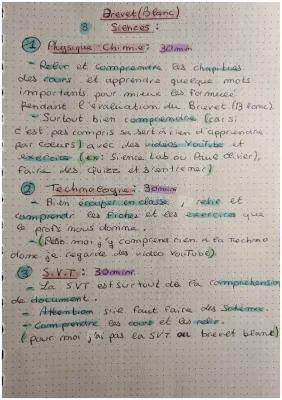 Brevet (Blanc)
③ Siences :
① Physique-Chimie : 30min
- Relir et comprendre les chapitres
des cours et apprendre quelque mots
importants pour mieux les formuler
pendant l'évaluation du Brevet (Blanc)
- Surtout bien comprendre (car si
c'est pas compris sa sert à rien d'apprendre
par coeurs) avec des vidéos YouTube et
exercice (ex: Science Lab ou Paul Olivier),
faire des Quizz et s'entrainer)
② Technologie : 30min
- Bien écouter en classe, relir et
comprendr les fiches et les exercices que
le profs nous donne.
- (Perso moi j'y comprend rien a la Techno
donc je regarde des video YouTube).
③ S.V.T : 30min
- La SVT est surtout de la compréhension
de document.
- Attention il faut faire des Schémas.
- Comprendre les cours et les relir.
(pour moi j'ai pas la SVT au brevet blanc)